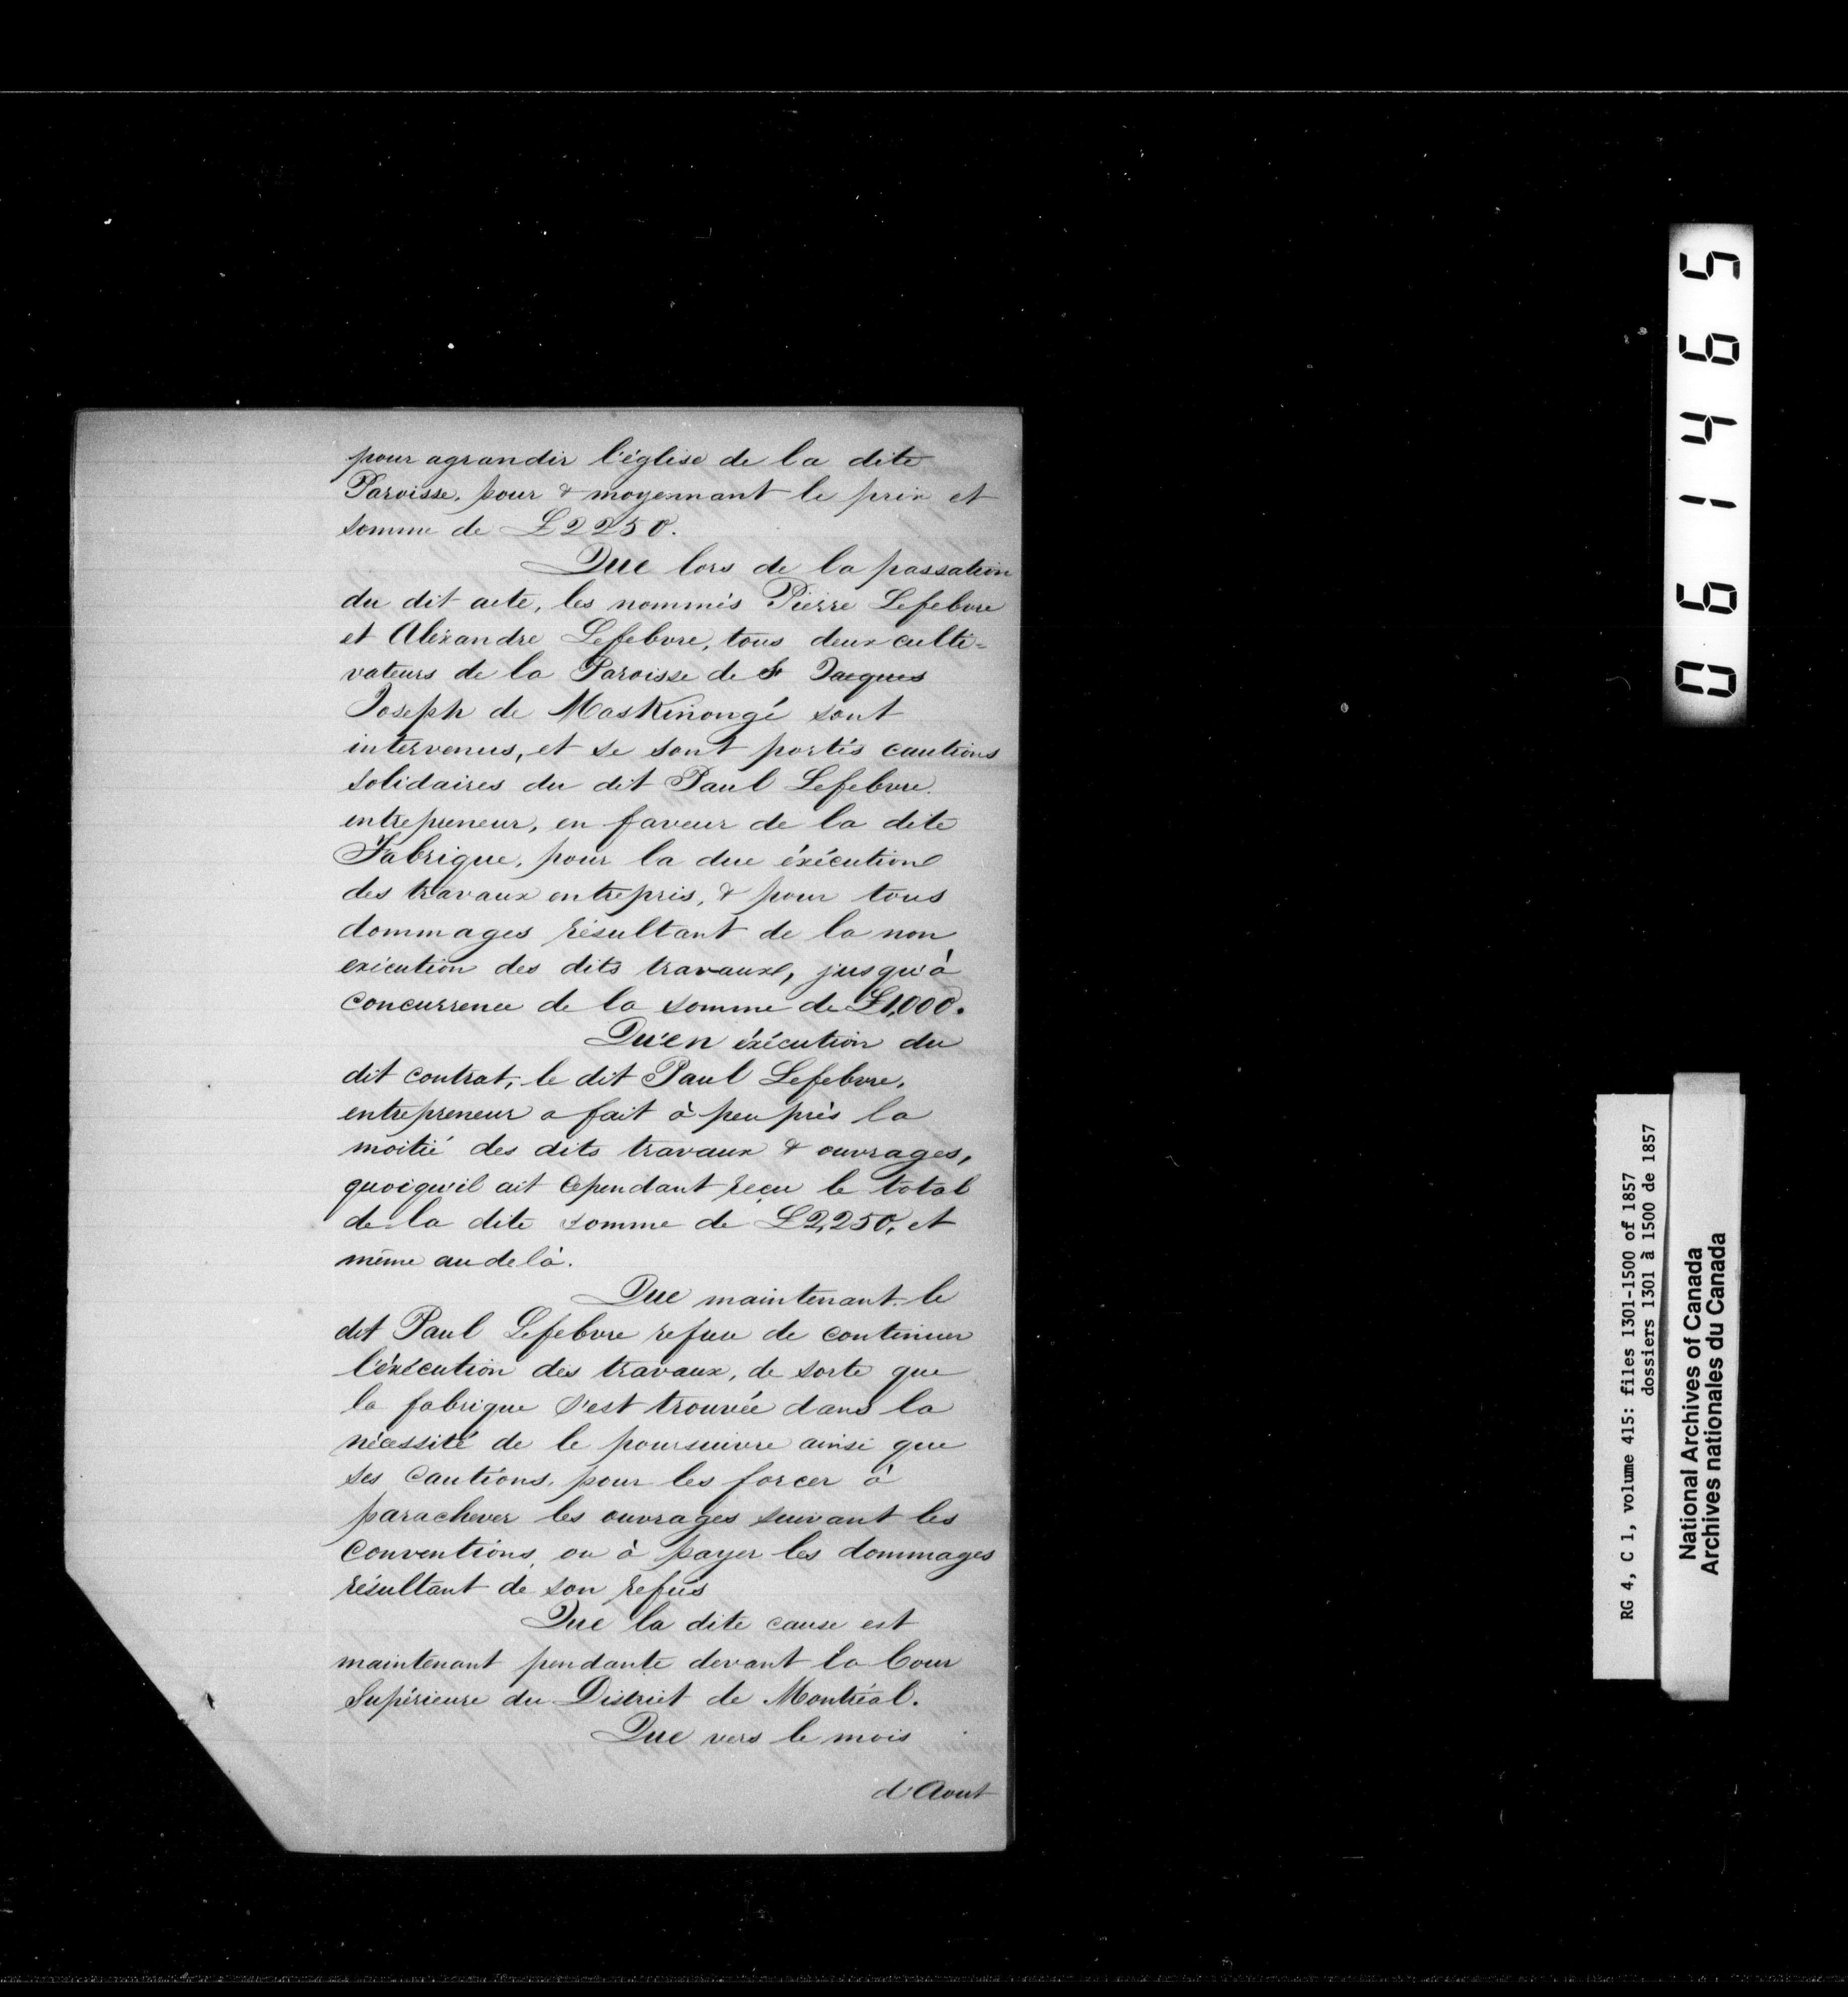 pour agrandir l'église de la dite
Paroisse, pour & moyennant le prix et
somme de £2250.
Que lors de la passation
du dit acte, les nommés Pierre Lefebvre
et Aléxandre Lefebvre, tous deux culti=
vateurs de la Paroisse de St Jacques
Joseph de Maskinongé sont
intervenus, et se sont portés cautions
solidaires du dit Paul Lefebvre
entrepreneur, en faveur de la dite
Fabrique, pour la due éxécution
des travaux entrepris, & pour tous
dommages résultant de la non
exécution des dits travaux, jusqu'à
concurrence de la somme de £1,000.
Qu'en éxécution du
dit contrat, le dit Paul Lefebvre,
entrepreneur a fait à peu près la
moitié des dits travaux & ouvrages,
quoiqu'il ait Cependant reçu le total
de la dite somme de £2,250, et
même au delà.
Que maintenant le
dit Paul Lefebvre refuse de continuer
l'éxécution des travaux, de sorte que
la fabrique s'est trouvée dans la
nécessité de le poursuivre ainsi que
ses Cautions, pour les forcer à
parachever les ouvrages suivant les
Conventions, ou à payer les dommages
résultant de son refus
Que la dite cause est
maintenant pendante devant la Cour
Supérieure du District de Montréal.
Que vers le mois
d'Aout
061465
RG 4, C 1, volume 415: files 1301-1500 of 1857
dossiers 1301 à 1500 de 1857
National Archives of Canada
Archives nationales du Canada